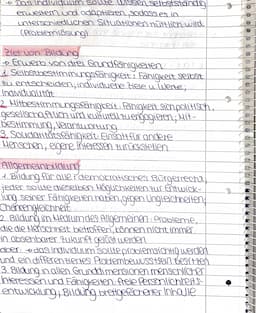 → Das Individuum sollte Wissen selbstständig
erweitern und adaptieren, sodass es in
unterschiedlichen Situationen nützlich wird
(Problemlösung)
Ziel von Bildung
→ Erwerb von drei Grundfähigkeiten
1. Selbstbestimmungsfähigkeit: Fähigkeit selbst
zu entscheiden, individuelle Ziele u. Werte,
Individualität
2. Mitbestimmungsfähigkeit: Fähigkeit sich politisch,
gesellschaftlich und kulturell zu engagieren, Mit-
bestimmung, Verantwortung
3. Solidaritätsfähigkeit: Einsatz für andere
Menschen, eigene Interessen zurückstellen
Allgemeinbildung
1. Bildung für alle: demokratisches Bürgerrecht,
jeder sollte dieselben Möglichkeiten zur Entwick-
lung seiner Fähigkeiten haben, gegen Ungleichheiten,
Chancengleichheit
2. Bildung im Medium des Allgemeinen: Probleme,
die die Menschheit betreffen, können nicht immer
in absehbarer Zukunft gelöst werden
aber: → das Individuum sollte problemsichtig werden
und ein differenziertes Problembewusstsein besitzen
3. Bildung in allen Grunddimensionen menschlicher
Interessen und Fähigkeiten: freie Persönlichkeits-
entwicklung, Bildung breitgefächerter Inhalte